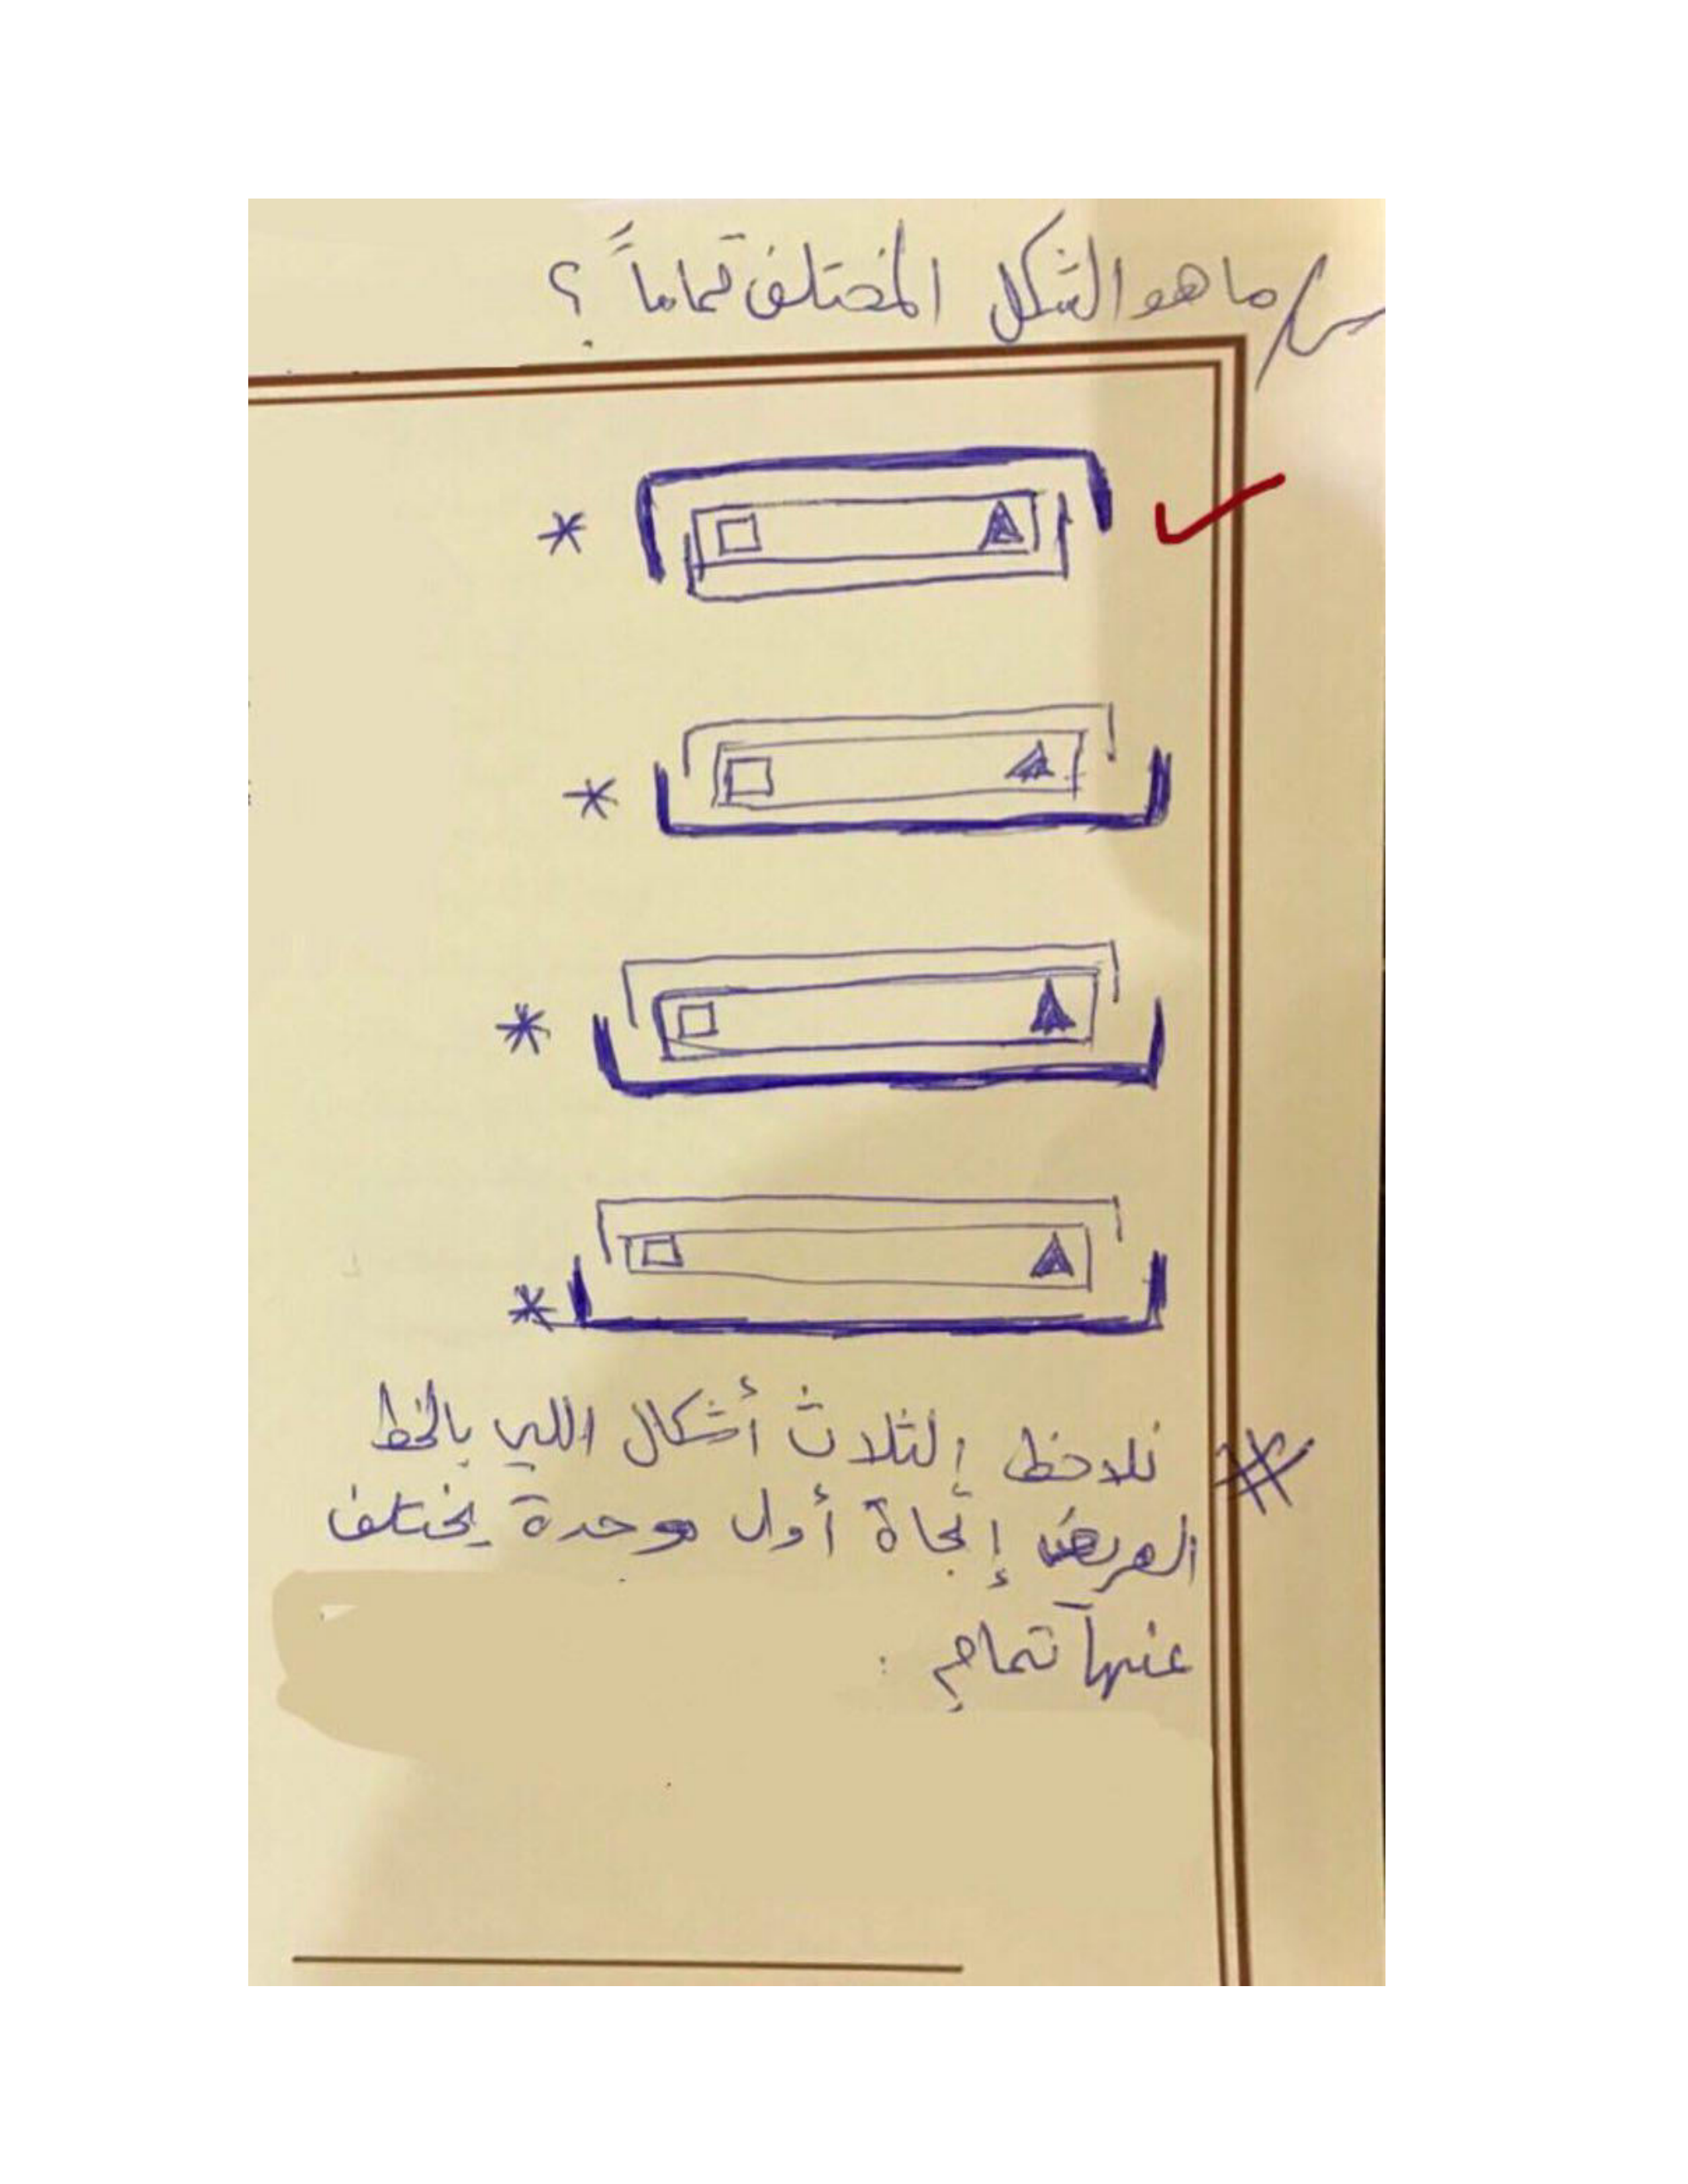 س/ ما هو الشكل المختلف تماماً ؟
نلاحظ الثلاث أشكال اللي بالخط
العريض إتجاة أول وحدة يختلف
عنها تمام .